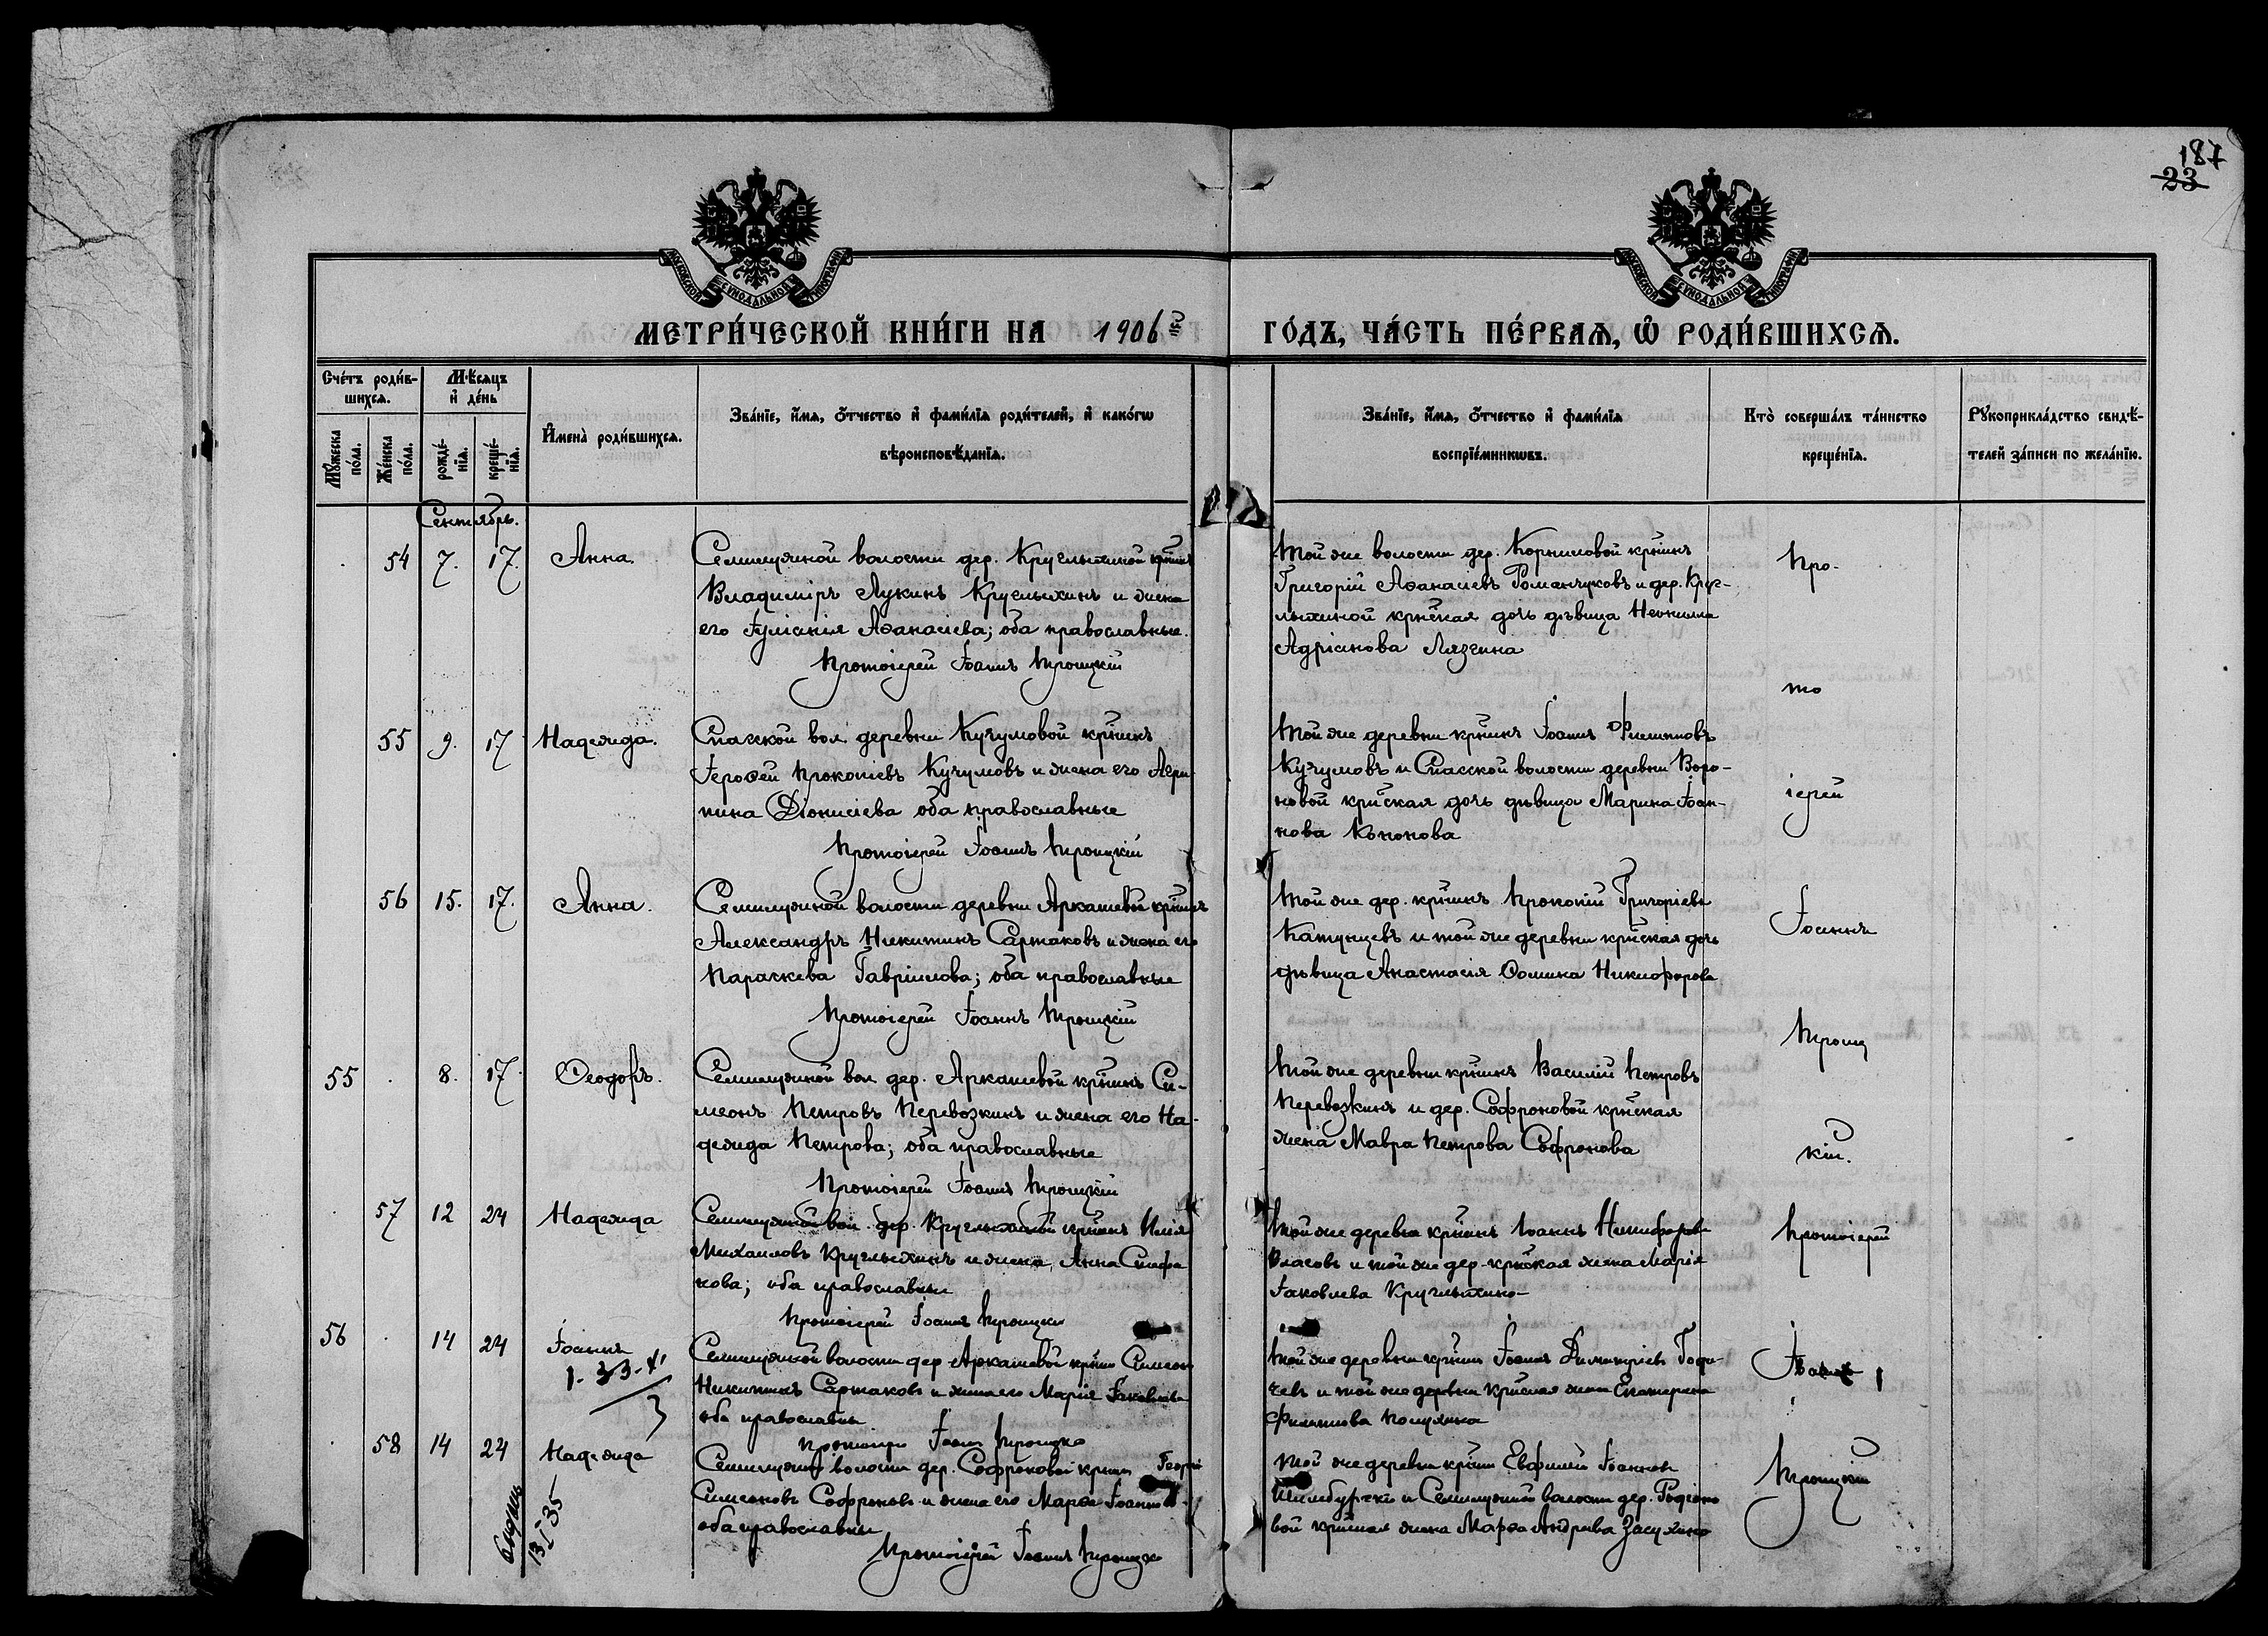 187
23
МОСКОВСКОЙ СѴНОДАЛЬНОЙ ТИПОГРАФІИ
МОСКОВСКОЙ СѴНОДАЛЬНОЙ ТИПОГРАФІИ
МЕТРИ́ЧЕСКОЙ КНИ́ГИ НА 1906 й ГО́ДЪ, ЧА́СТЬ ПЕ́РВАѦ, Ѡ҆ РОДИ́ВШИХСѦ.
Счéтъ роди́в-
шихсѧ.
Мꙋ́жеска по́ла.
Же́нска по́ла.
Мѣ́сѧцъ
и҆ де́нь
рожде́-
нїѧ.
креще́-
нїѧ.
И҆мена̀ роди́вшихсѧ.
Зва́нїе, и҆́мѧ, ѻ҆́тчество и҆ фами́лїѧ роди́телей, и҆ како́гѡ
вѣроисповѣ́данїѧ.
Зва́нїе, и҆́мѧ, ѻ҆́тчество и҆ фами́лїѧ
воспрїе́мникѡвъ.
Кто̀ соверша́лъ та́инство
креще́нїѧ.
Рꙋкоприкла́дство свидѣ́-
телей за́писи по жела́нїю.
Сентябрь.
54 7. 17. Анна.
Семилужной волости дер. Кругльхиной кр̃нинъ
Владиміръ Лукинъ Кругльхинъ и жена
его Іуліанія Аѳанасіева; оба православные.
Протоіерей Іоаннъ Троицкій
Той же волости дер. Корниловой кр̃нинъ
Григорій Аѳанасіевъ Романчуковъ и дер. Круг-
льхиной кр̃нская дочь дѣвица Неонила
Адріанова Лязгина
Про-
то
55 9. 17 Надежда.
Спасской вол. деревни Кучумовой кр̃нинъ
Іероѳей Прокопіевъ Кучумовъ и жена его Агри-
пина Діонисіева оба православные
Протоіерей Іоаннъ Троицкій
Той же деревни кр̃нинъ Іоаннъ Филипповъ
Кучумовъ и Спасской волости деревни Воро-
новой кр̃нская дочь дѣвица Марина Іоан-
нова Кононова
іерей
56 15. 17. Анна.
Семилужной волости деревни Аркашевой кр̃нинъ
Александръ Никитинъ Сартаковъ и жена его
Параскева Гавріилова; оба православные
Протоіерей Іоаннъ Троицкій
Той же дер. кр̃нинъ Прокопій Григоріевъ
Катунцевъ и той же деревни кр̃нская дочь
дѣвица Анастасія Ѳомина Никифорова
Іоаннъ
Троиц
55 8. 17. Ѳеодоръ.
Семилужной вол дер. Аркашевой кр̃нинъ Си-
меонъ Петровъ Перевозкинъ и жена его На-
дежда Петрова; оба православные
Протоіерей Іоаннъ Троицкій
Той же деревни кр̃нинъ Василій Петровъ
Перевозкинъ и дер. Софроновой кр̃нская
жена Мавра Петрова Софронова
кій.
57 12 24 Надежда
Семилужной вол. дер. Кругльхиной кр̃нинъ Илія
Михаиловъ Кругльхинъ и жена Анна Стефа
нова; оба православны
Протоіерей Іоаннъ Троицкій
Той же деревни кр̃нинъ Іоаннъ Никифоровъ
Власовъ и той же дер. кр̃нская жена Марія
Іаковлева Кругльхина
Протоіерей
56 14 24 Іоаннъ
Семилужной волости дер Аркашевой кр̃нин Симеон
Никитинъ Сартаковъ и жена его Марія Іаковлева
оба православны
Протоіерей Іоаннъ Троицкій
Той же деревни кр̃нин Іоаннъ Димитріевъ
и той же деревни кр̃нская жена Екатерина
Филиппова
Іоаннъ
58 14 24 Надежда
Семилужной волости дер. Софроновой кр̃нин Георгій
Симеоновъ Софроновъ и жена его Марѳа Іоаннова
оба православны
Протоіерей Іоаннъ Троицкій
Той же деревни кр̃нин Евфимій Іоанновъ
и Семилужной волости дер. Родіоно
вой кр̃нская жена Марѳа Андреева Засухина
Троицкій
13 I 35